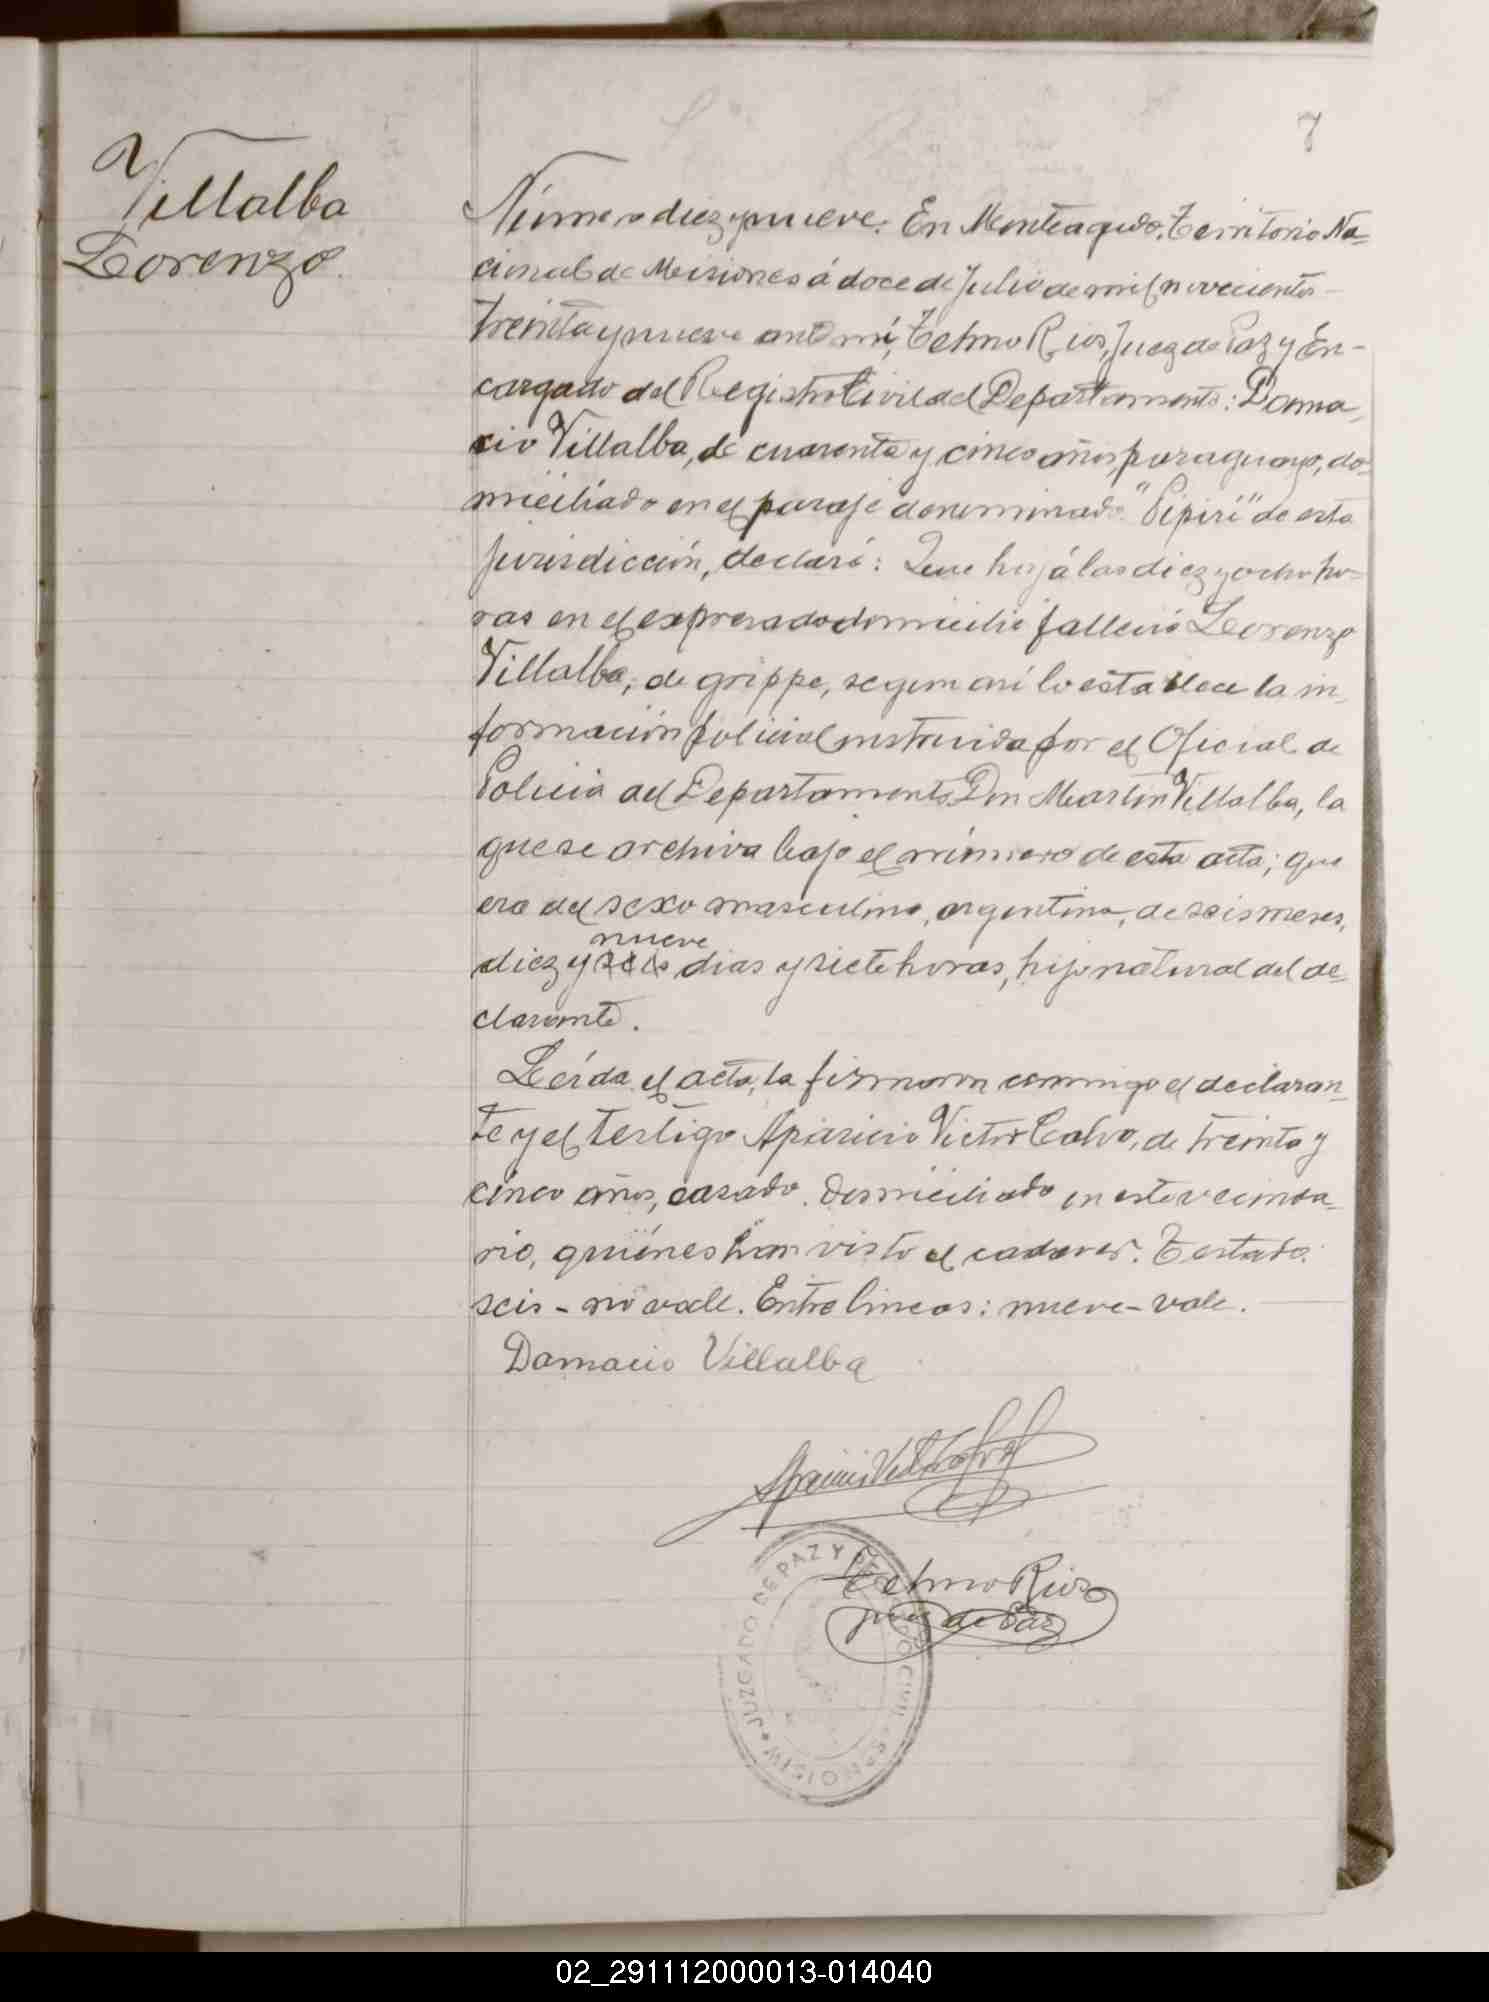 7
Villalba
Lorenzo
Número diez y nueve. En Monteagudo, Territorio Na-
cional de Misiones á doce de Julio de mil novecientos
treinta y nueve ante mí, Telmo Rios, Juez de Paz y En-
cargado del Registro Civil del Departamento: Dama-
cio Villalba, de cuarenta y cinco años, paraguayo, do-
miciliado en el paraje denominado "Pipirí" de esta
jurisdicción, declaró: Que hoy á las diez y ocho ho-
ras en el expresado domicilio falleció Lorenzo
Villalba, de grippe, segun asi lo establece la in-
formación policial instruida por el Oficial de
Policia del Departamento Don Martin Villalba, la
que se archiva bajo el número de esta acta; que
era del sexo masculino, argentino, de seis meses,
nueve
diez y seis dias y siete horas, hijo natural del de-
clarante.
Leída el acta, la firmaron conmigo el declaran-
te y el testigo Aparicio Victor Calvo, de treinta y
cinco años, casado, domiciliado en este vecinda-
rio, quiénes han visto el cadaver. Testado:
seis - no vale. Entre lineas: nueve - vale.
Damacio Villalba
Telmo Rios
Juez de Paz
JUZGADO DE PAZ Y REGISTRO CIVIL
MISIONES
02_291112000013-014040